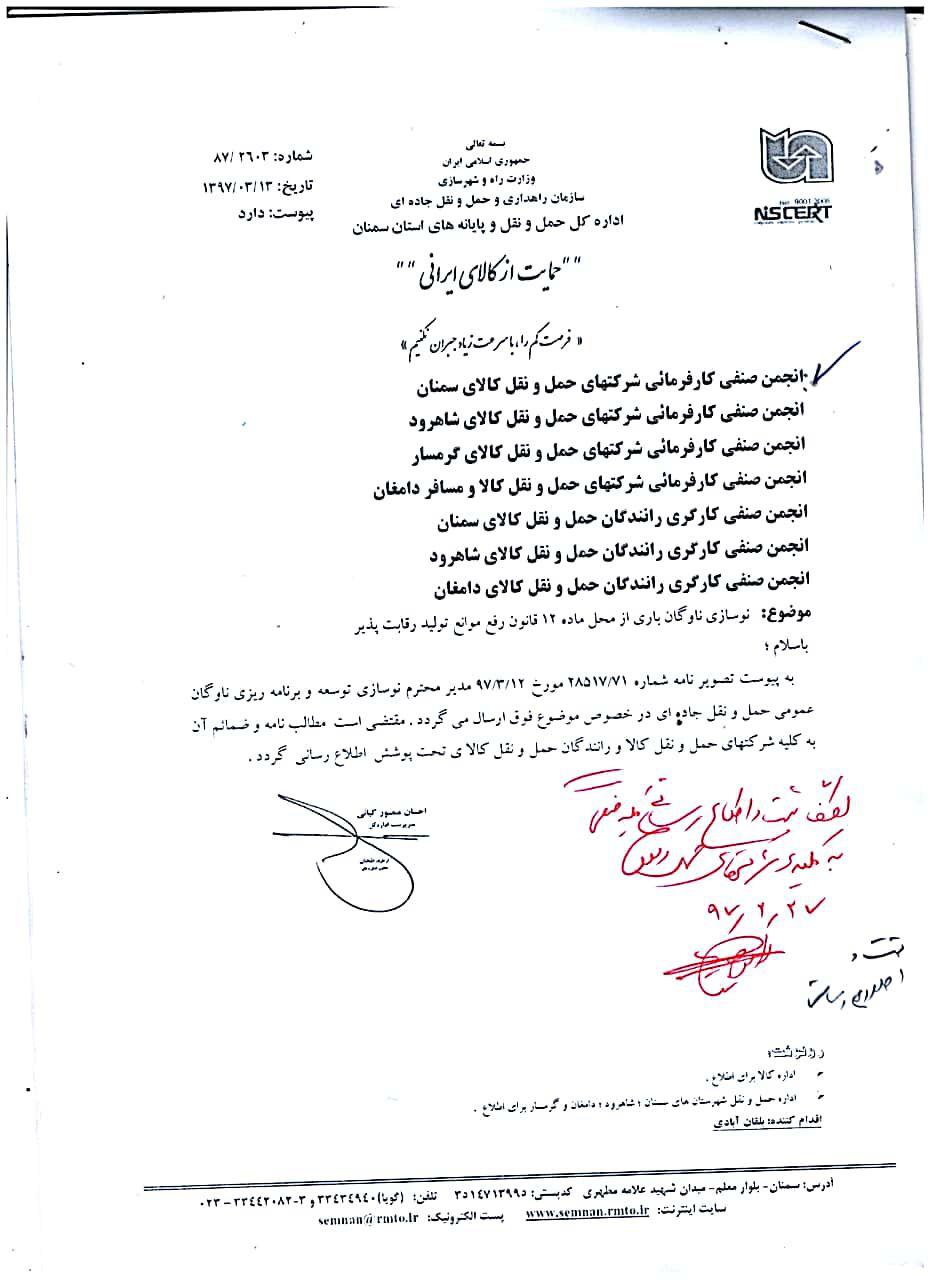 بسمه تعالی
جمهوری اسلامی ایران
وزارت راه و شهرسازی
سازمان راهداری و حمل و نقل جاده ای
اداره کل حمل و نقل و پایانه های استان سمنان
شماره: ۸۷/۲۶۰۳
تاریخ: ۱۳۹۷/۰۳/۱۳
پیوست: دارد
9001:2008
NISCERT
"" حمایت از کالای ایرانی ""
« فرصت کم را، با سرعت زیاد جبران نکنیم »
انجمن صنفی کارفرمائی شرکتهای حمل و نقل کالای سمنان
انجمن صنفی کارفرمائی شرکتهای حمل و نقل کالای شاهرود
انجمن صنفی کارفرمائی شرکتهای حمل و نقل کالای گرمسار
انجمن صنفی کارفرمائی شرکتهای حمل و نقل کالا و مسافر دامغان
انجمن صنفی کارگری رانندگان حمل و نقل کالای سمنان
انجمن صنفی کارگری رانندگان حمل و نقل کالای شاهرود
انجمن صنفی کارگری رانندگان حمل و نقل کالای دامغان
موضوع: نوسازی ناوگان باری از محل ماده ۱۲ قانون رفع موانع تولید رقابت پذیر
باسلام ؛
به پیوست تصویر نامه شماره ۲۸۵۱۷/۷۱ مورخ ۹۷/۳/۱۲ مدیر محترم نوسازی توسعه و برنامه ریزی ناوگان
عمومی حمل و نقل جاده ای در خصوص موضوع فوق ارسال می گردد . مقتضی است مطالب نامه و ضمائم آن
به کلیه شرکتهای حمل و نقل کالا و رانندگان حمل و نقل کالا ی تحت پوشش اطلاع رسانی گردد .
احسان منصور کیائی
سرپرست اداره کل
ثبت و اطلاع
به کلیه شرکتهای
ثبت و
رونوشت:
اداره کالا برای اطلاع .
اداره حمل و نقل شهرستان های سمنان ؛ شاهرود ؛ دامغان و گرمسار برای اطلاع .
اقدام کننده: بلقان آبادی
آدرس: سمنان- بلوار معلم- میدان شهید علامه مطهری کدبستی: ۳۵۱۴۷۱۳۹۹۵ تلفن: (گویا)۳۳۴۳۴۹۴۰ و ۳-۳۳۴۴۲۰۸۲ - ۰۲۳
سایت اینترنت: www.semnan.rmto.ir پست الکترونیک: semnan@rmto.ir